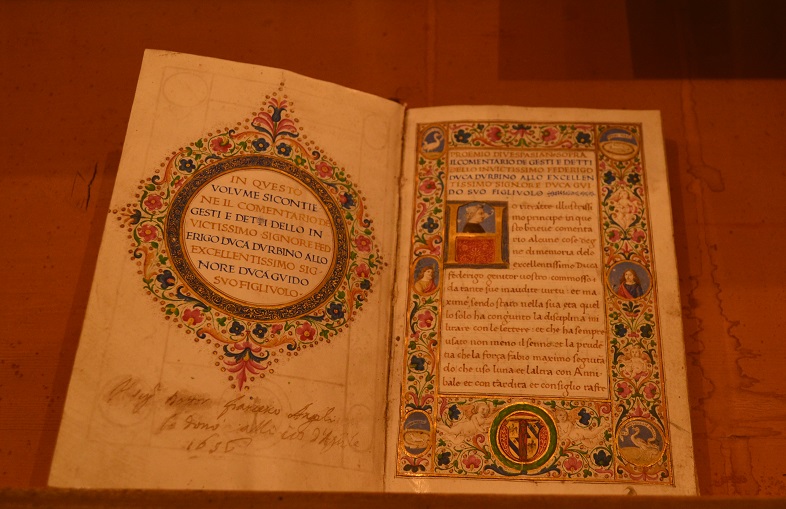 IN QVESTO
VOLVME SI CONTIE
NE IL COMENTARIO DE
GESTI E DETTI DELLO IN
VICTISSIMO SIGNORE FED
ERIGO DVCA DVRBINO ALLO
EXCELLENTISSIMO SIG-
NORE DVCA GVIDO
SVO FIGLIVOLO·
1655
PROEMIO DI VESPASIANO
IL COMENTARIO DE GESTI E DETTI
DELLO INVICTISSIMO FEDERIGO
DVCA DVRBINO ALLO EXCELLEN
TISSIMO SIGNOR E DVCA GVI
DO SVO FIGLIVOLO
illustrissi
mo principe in que
sto breue comenta
rio alcune cose deg
ne di memoria delo
excellentissimo Duca
federigo genitor uostro: commosso
da tante sue inaudite uirtu: et ma
xime sendo stato nella sua eta quel
lo solo ha congiunto la disciplina mi
litare con le lettere: et che ha sempre
usato non meno il senno: et la prude
tia che la forza fabio maximo
do: che uso luna et laltra con Anni
bale: et con tardita et consiglio